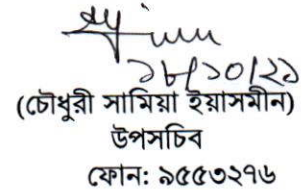 ১৮/১০/২১
(চৌধুরী সামিয়া ইয়াসমীন)
উপসচিব
ফোন: ৯৫৫৩২৭৬